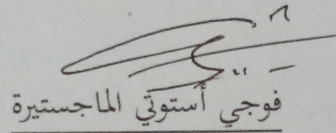 فوجي أستوتي الماجستيرة